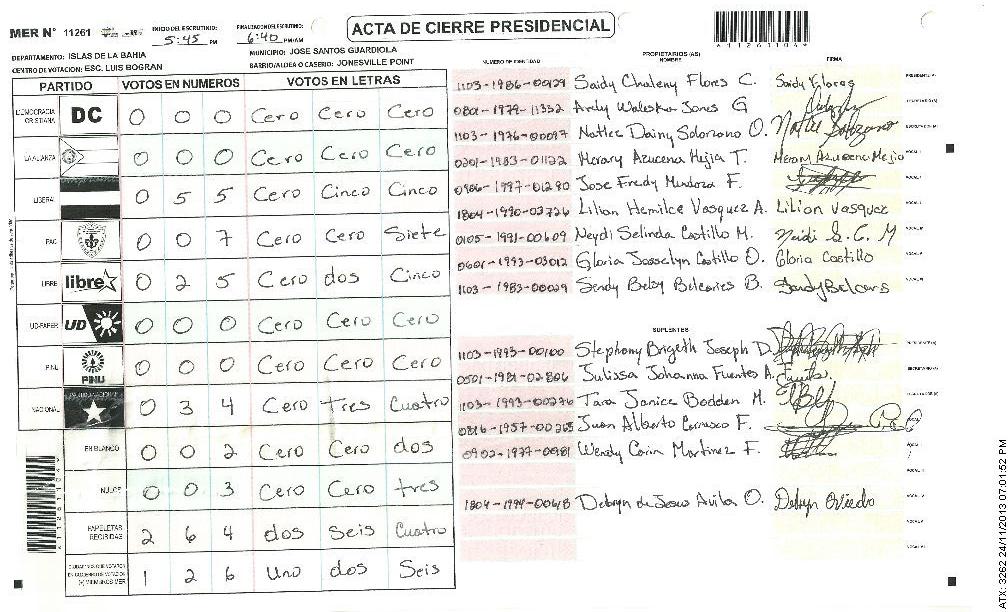 MER N° 11261
INICIO DEL ESCRUTINIO: 5:45 PM
FINALIZACION DEL ESCRUTINIO: 6:40 PM/AM
ACTA DE CIERRE PRESIDENCIAL
DEPARTAMENTO: ISLAS DE LA BAHIA
MUNICIPIO: JOSE SANTOS GUARDIOLA
CENTRO DE VOTACION: ESC. LUIS BOGRAN
BARRIO/ALDEA O CASERIO: JONESVILLE POINT
PARTIDO VOTOS EN NUMEROS VOTOS EN LETRAS
DEMOCRACIA CRISTIANA DC 0 0 0 Cero Cero Cero
LA ALIANZA 0 0 0 Cero Cero Cero
LIBERAL 0 5 5 Cero Cinco Cinco
PAC 0 0 7 Cero Cero Siete
LIBRE libre 0 2 5 Cero dos Cinco
UD-FAPER UD 0 0 0 Cero Cero Cero
PINU PINU 0 0 0 Cero Cero Cero
NACIONAL 0 3 4 Cero Tres Cuatro
EN BLANCO 0 0 2 Cero Cero dos
NULOS 0 0 3 Cero Cero tres
PAPELETAS RECIBIDAS 2 6 4 dos Seis Cuatro
1 2 6 Uno dos Seis
NUMERO DE IDENTIDAD PROPIETARIOS (AS) NOMBRE FIRMA
1103-1986-00029 Saidy Chaleny Flores C. Saidy Flores
0801-1979-11332 Ardy Waleska Jones G
1103-1976-00097 Natlee Dainy Solorzano O. Natlee Solorzano
0201-1983-01122 Merary Azucena Mejia T. Merary Azucena Mejia
0906-1997-01290 Jose Fredy Mendoza F.
1804-1990-03726 Lilian Hemilce Vasquez A. Lilian Vasquez
0105-1991-00609 Neydi Selinda Castillo M. Neidi S. C. M
0601-1993-03012 Gloria Josselyn Castillo O. Gloria Castillo
1103-1983-00029 Sendy Betsy Belcaries B.
SUPLENTES
1103-1993-00100 Stephony Brigeth Joseph D.
0501-1981-02806 Julissa Johanna Fuentes A.
1103-1993-00276 Tara Janice Bodden M.
0816-1957-00265 Juan Alberto Carrasco F.
0902-1977-00981 Wendy Carin Martinez F.
1804-1994-00618 Debryn de Jesus Avila O. Debryn Oviedo
ATX: 3262 24/11/2013 07:01:52 PM